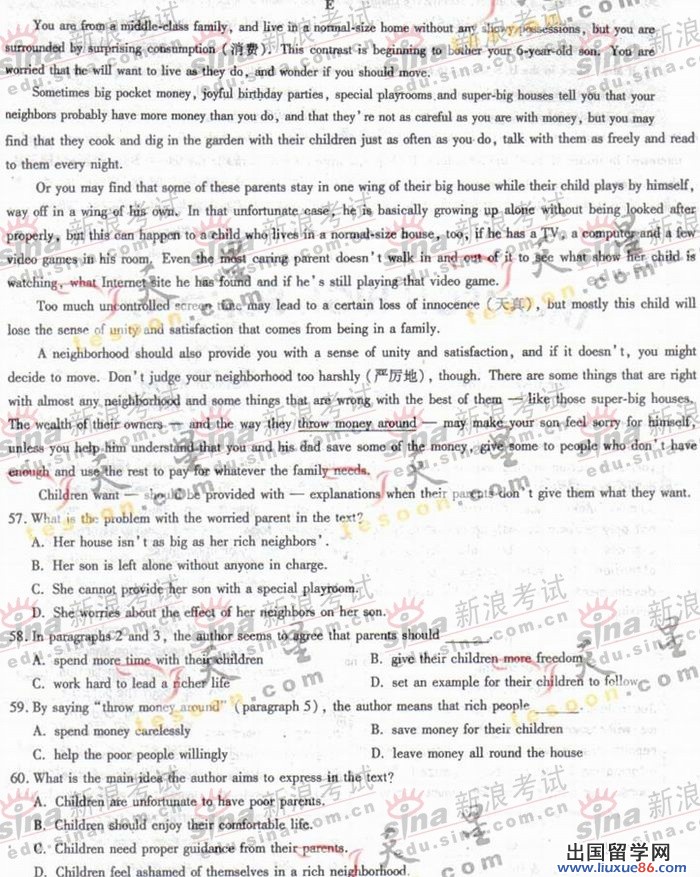 E
You are from a middle-class family, and live in a normal-size home without any showy possessions, but you are
surrounded by surprising consumption (消费). This contrast is beginning to bother your 6-year-old son. You are
worried that he will want to live as they do, and wonder if you should move.
Sometimes big pocket money, joyful birthday parties, special playrooms and super-big houses tell you that your
neighbors probably have more money than you do, and that they're not as careful as you are with money, but you may
find that they cook and dig in the garden with their children just as often as you do, talk with them as freely and read
to them every night.
Or you may find that some of these parents stay in one wing of their big house while their child plays by himself,
way off in a wing of his own. In that unfortunate case, he is basically growing up alone without being looked after
properly, but this can happen to a child who lives in a normal-size house, too, if he has a TV, a computer and a few
video games in his room. Even the most caring parent doesn't walk in and out of it to see what show her child is
watching, what Internet site he has found and if he's still playing that video game.
Too much uncontrolled screen time may lead to a certain loss of innocence (天真), but mostly this child will
lose the sense of unity and satisfaction that comes from being in a family.
A neighborhood should also provide you with a sense of unity and satisfaction, and if it doesn't, you might
decide to move. Don't judge your neighborhood too harshly (严厉地), though. There are some things that are right
with almost any neighborhood and some things that are wrong with the best of them — like those super-big houses.
The wealth of their owners — and the way they throw money around — may make your son feel sorry for himself,
unless you help him understand that you and his dad save some of the money, give some to people who don't have
enough and use the rest to pay for whatever the family needs.
Children want — should be provided with — explanations when their parents don't give them what they want.
57. What is the problem with the worried parent in the text?
A. Her house isn't as big as her rich neighbors'.
B. Her son is left alone without anyone in charge.
C. She cannot provide her son with a special playroom.
D. She worries about the effect of her neighbors on her son.
58. In paragraphs 2 and 3, the author seems to agree that parents should _____.
A. spend more time with their children B. give their children more freedom
C. work hard to lead a richer life D. set an example for their children to follow
59. By saying "throw money around" (paragraph 5), the author means that rich people _____.
A. spend money carelessly B. save money for their children
C. help the poor people willingly D. leave money all round the house
60. What is the main idea the author aims to express in the text?
A. Children are unfortunate to have poor parents.
B. Children should enjoy their comfortable life.
C. Children need proper guidance from their parents.
D. Children feel ashamed of themselves in a rich neighborhood.
sina 新浪考试
edu.sina.com.cn
天星
tesoon.com
出国留学网
www.liuxue86.com